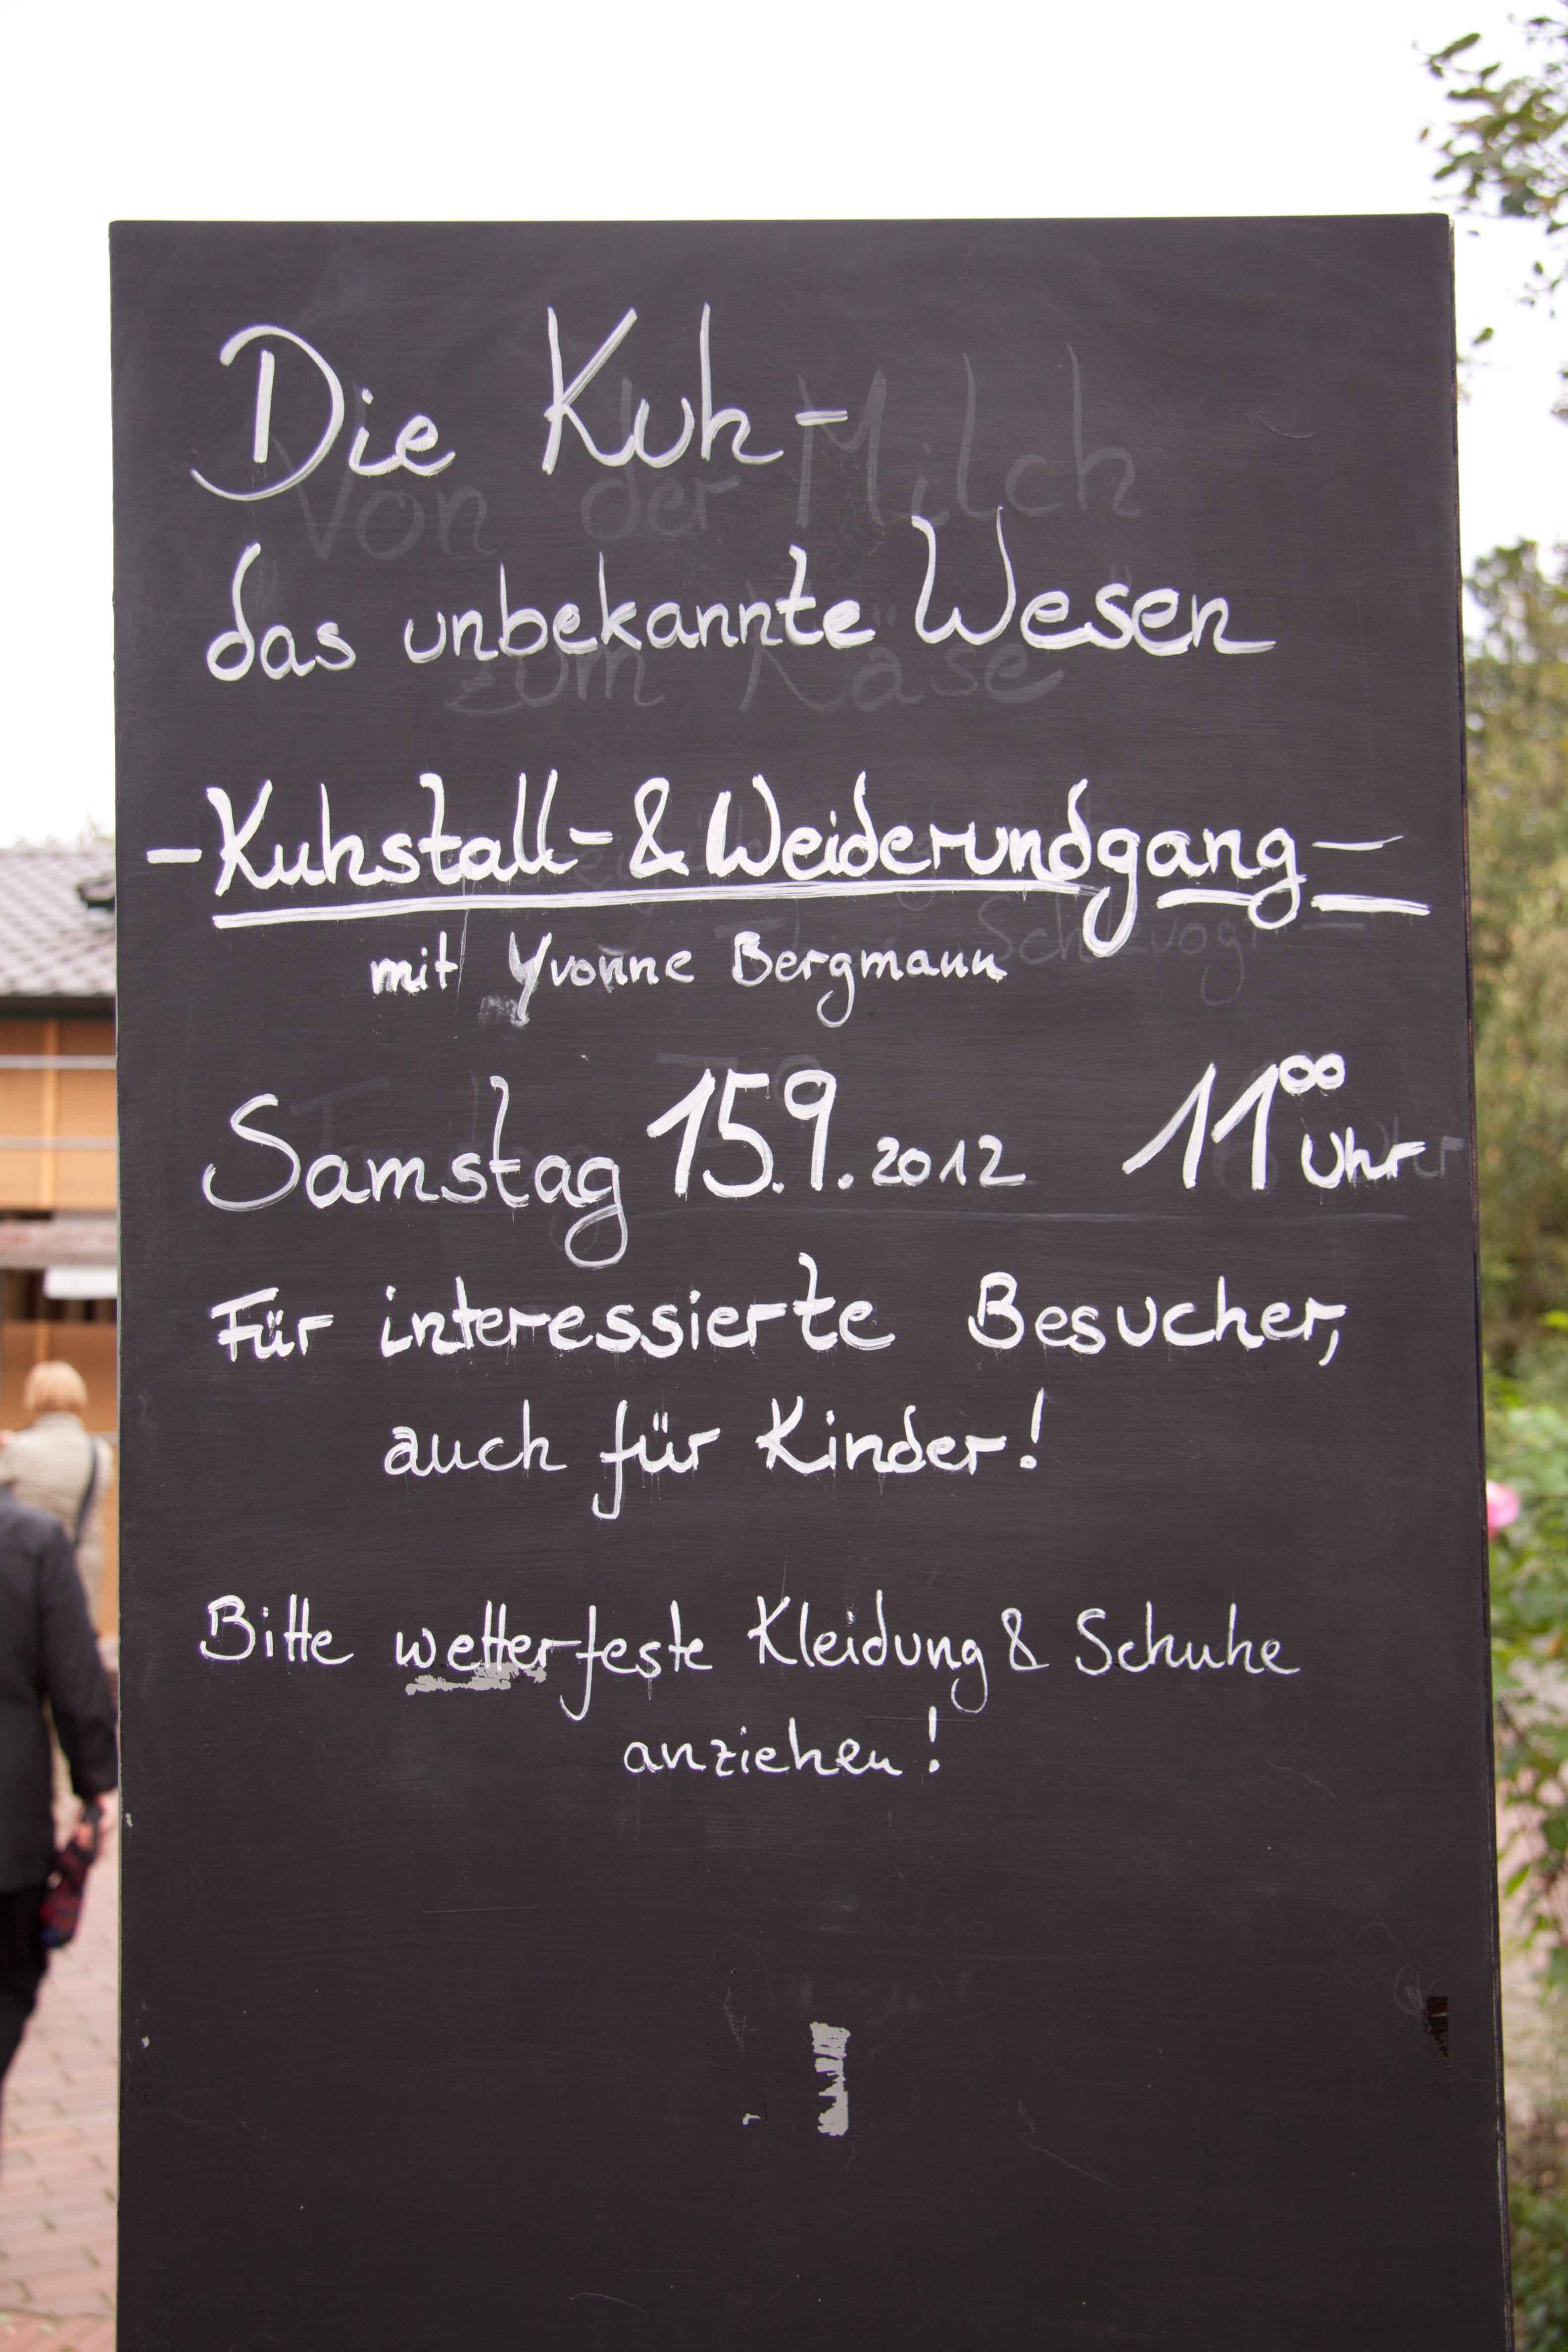 Die Kuh -
Von der Milch
das unbekannte Wesen
zum Käse
- Kuhstall- & Weiderundgang -
mit Yvonne Bergmann
Samstag 15.9.2012 11⁰⁰ Uhr
Für interessierte Besucher,
auch für Kinder!
Bitte wetterfeste Kleidung & Schuhe
anziehen!